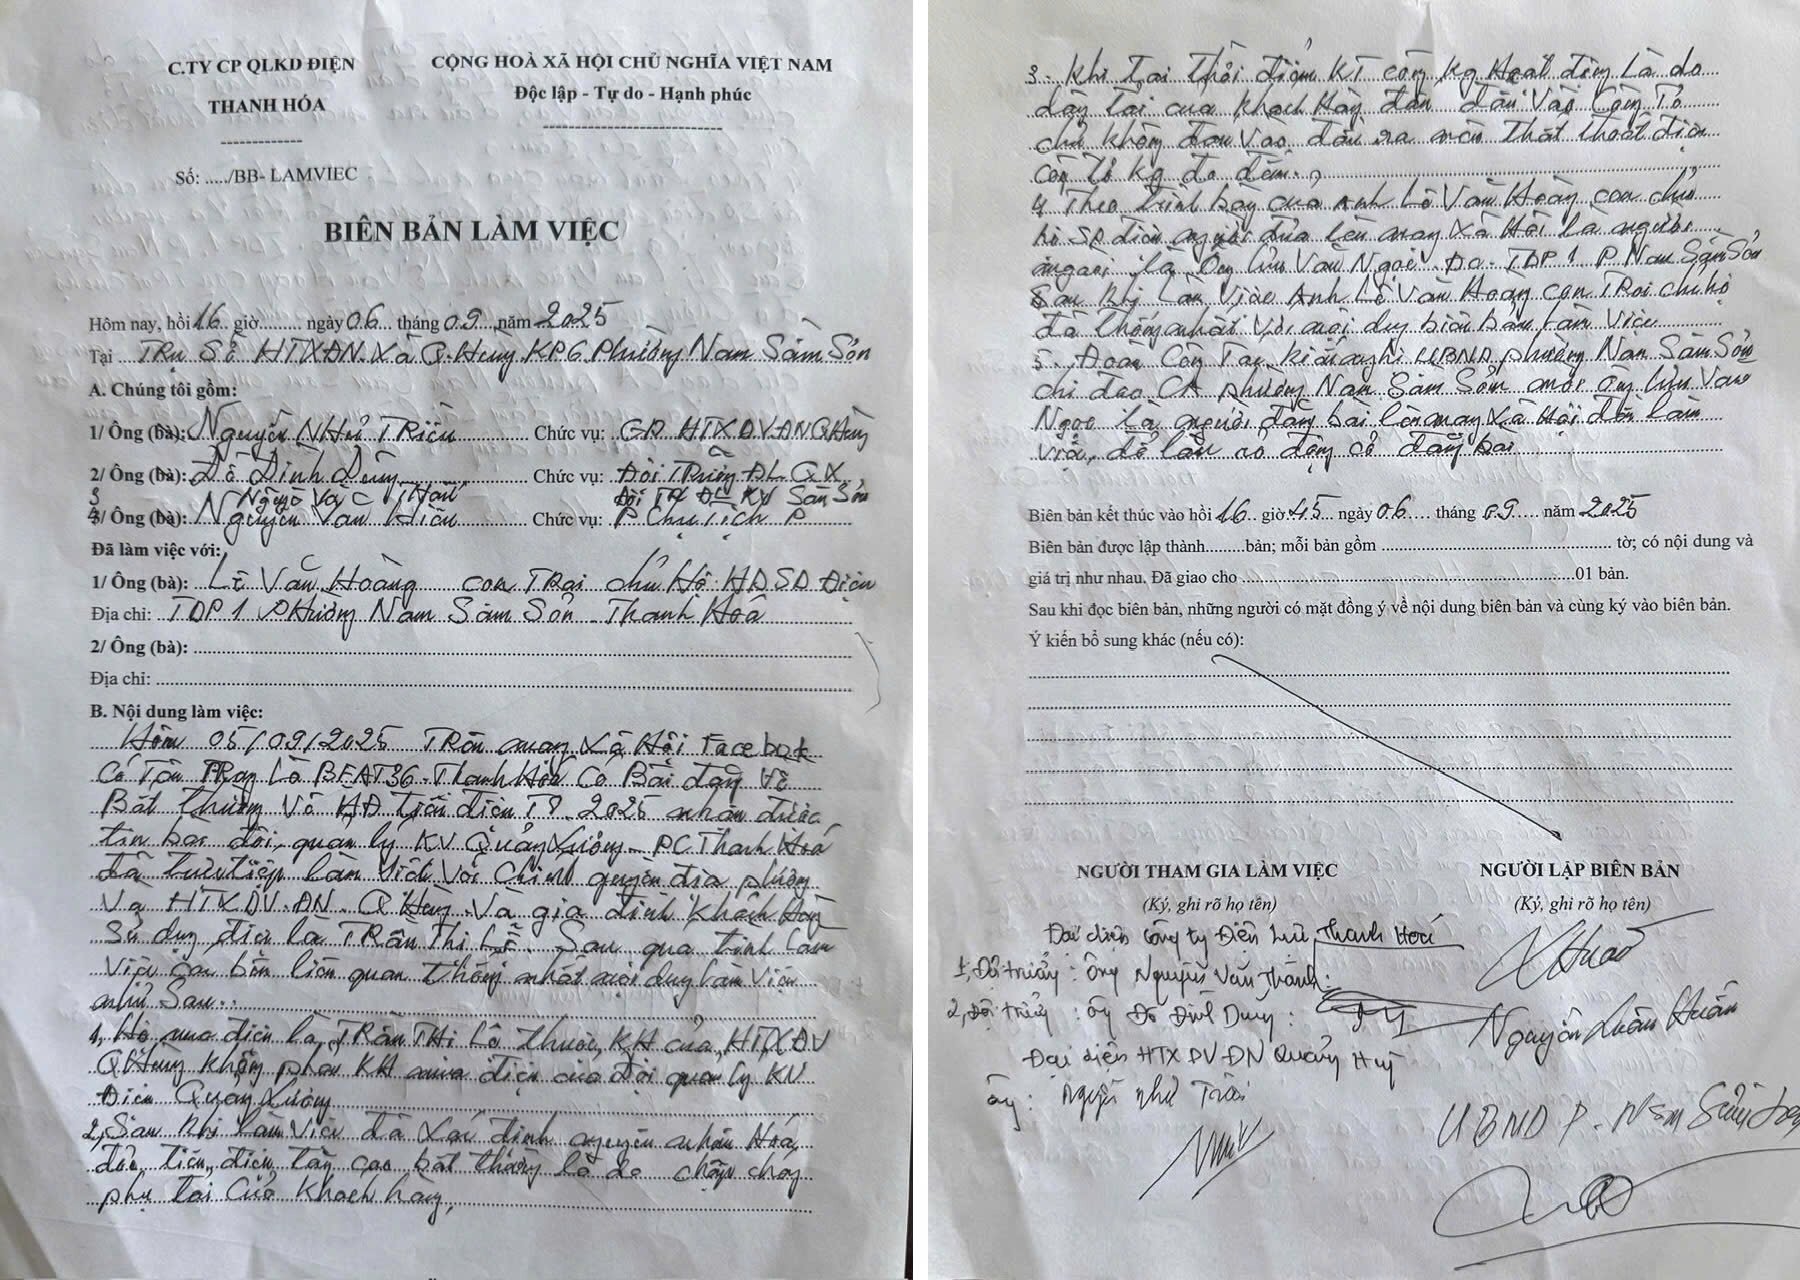 C.TY CP QLKD ĐIỆN
THANH HÓA
-------------
Số: ...../BB- LAMVIEC
CỘNG HOÀ XÃ HỘI CHỦ NGHĨA VIỆT NAM
Độc lập - Tự do - Hạnh phúc
----------------------------
BIÊN BẢN LÀM VIỆC
Hôm nay, hồi 16 giờ......... ngày 06 tháng 09 năm 2025
Tại Trụ Sở HTXĐN. Xã Q. Hùng KP6 Phường Nam Sầm Sơn
A. Chúng tôi gồm:
1/ Ông (bà): Nguyễn Như Triều Chức vụ: GĐ HTXDVĐN Q Hùng
2/ Ông (bà): Đỗ Đình Dũng Chức vụ: Đội Trưởng ĐL. QX
3 Đội KV Sầm Sơn
4/ Ông (bà): Nguyễn Văn Hiếu Chức vụ: P Chủ Tịch P
Đã làm việc với:
1/ Ông (bà): Lê Văn Hoàng con Trai chủ Hộ HĐSD Điện
Địa chỉ: TDP 1 Phường Nam Sầm Sơn - Thanh Hoá
2/ Ông (bà):
Địa chỉ:
B. Nội dung làm việc:
Hôm 05/09/2025 Trên mạng Xã Hội Facebook
Có Tên Trang Là BEAT36 - Thanh Hoá Có Bài đăng Về
Bất thường Về HĐ tiền điện T8. 2025 nhận được
tin báo đội quản lý KV Quảng Xương - PC Thanh Hoá
đã trực tiếp làm Việc Với Chính quyền địa phương
Và HTXDV. ĐN. Q Hùng Và gia đình Khách Hàng
Sử dụng điện là Trần Thị Lê. Sau quá trình làm
Việc các bên liên quan thống nhất nội dung làm Việc
như Sau:
1, Hộ mua điện là Trần Thị Lê thuộc KH của HTXDV
Q Hùng không phải KH mua điện của đội quản lý KV
Điện Quảng Xương
2, Sau Khi làm Việc đã Xác định nguyên nhân Hoá
đơn tiền điện tăng cao bất thường là do chập cháy
phụ tải Của Khách hàng,
3. Khi tại thời điểm KT công Kg Hoạt động là do
dây tải của khách Hàng đấu dẫn Vào Công Tơ
chứ không đấu Vào đầu ra nên thất thoát điện
công tơ kg đo đếm.
4 Theo trình bày của Anh Lê Văn Hoàng con chủ
hộ SD điện người đưa lên mạng Xã Hội là người
ngoài là Ông Lưu Văn Ngọc. Đc - TDP 1 P Nam Sầm Sơn
Sau Khi Làm Việc Anh Lê Văn Hoàng con Trai chủ hộ
đã thống nhất Với nội dung biên bản làm Việc
5. Đoàn Công Tác kiến nghị UBND phường Nam Sầm Sơn
chỉ đạo CA phường Nam Sầm Sơn mời ông Lưu Văn
Ngọc là người đăng bài lên mạng Xã Hội đến làm
việc, để làm rõ động cơ đăng bài
Biên bản kết thúc vào hồi 16 giờ 45 ngày 06 tháng 09 năm 2025
Biên bản được lập thành.........bản; mỗi bản gồm ............ tờ; có nội dung và
giá trị như nhau. Đã giao cho ............01 bản.
Sau khi đọc biên bản, những người có mặt đồng ý về nội dung biên bản và cùng ký vào biên bản.
Ý kiến bổ sung khác (nếu có):
NGƯỜI THAM GIA LÀM VIỆC
(Ký, ghi rõ họ tên)
Đại diện Công ty Điện lực Thanh Hoá
1, Đội trưởng: Ông Nguyễn Văn Thành:
2, Đội trưởng: ông Đỗ Đình Dũng:
Đại diện HTX DV ĐN Quảng Hùng
ông: Nguyễn Như Triều
NGƯỜI LẬP BIÊN BẢN
(Ký, ghi rõ họ tên)
Nguyễn Xuân Huấn
UBND P. Nam Sầm Sơn